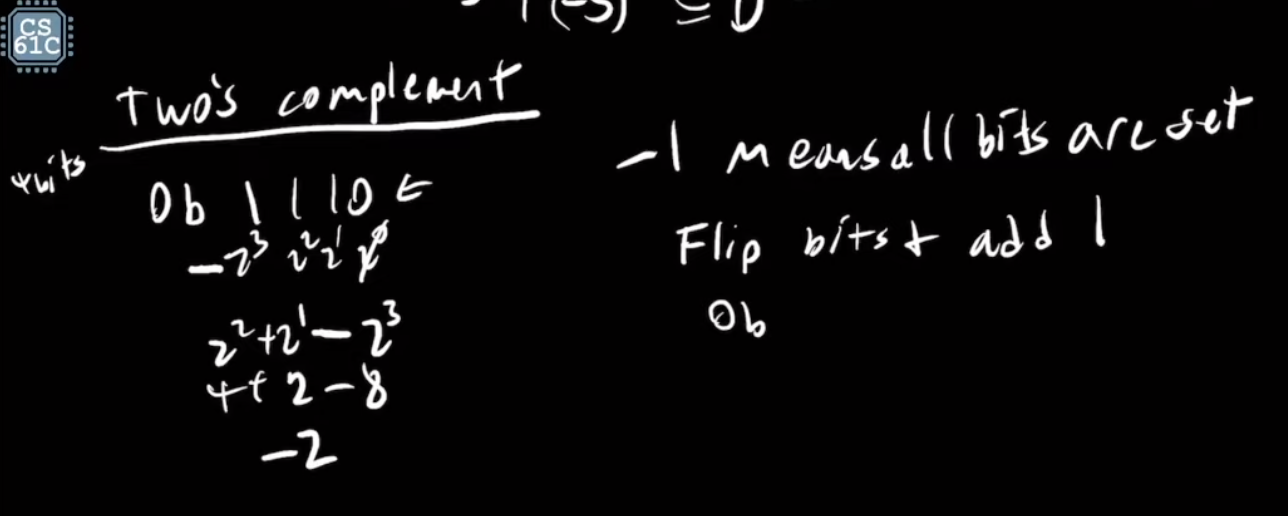 CS
61C
+(-5) = 0
Two's complement
4 bits
0b 1 1 1 0 ←
-2³ 2² 2¹ 2⁰
2² + 2¹ - 2³
4 + 2 - 8
-2
-1 means all bits are set
Flip bits + add 1
0b